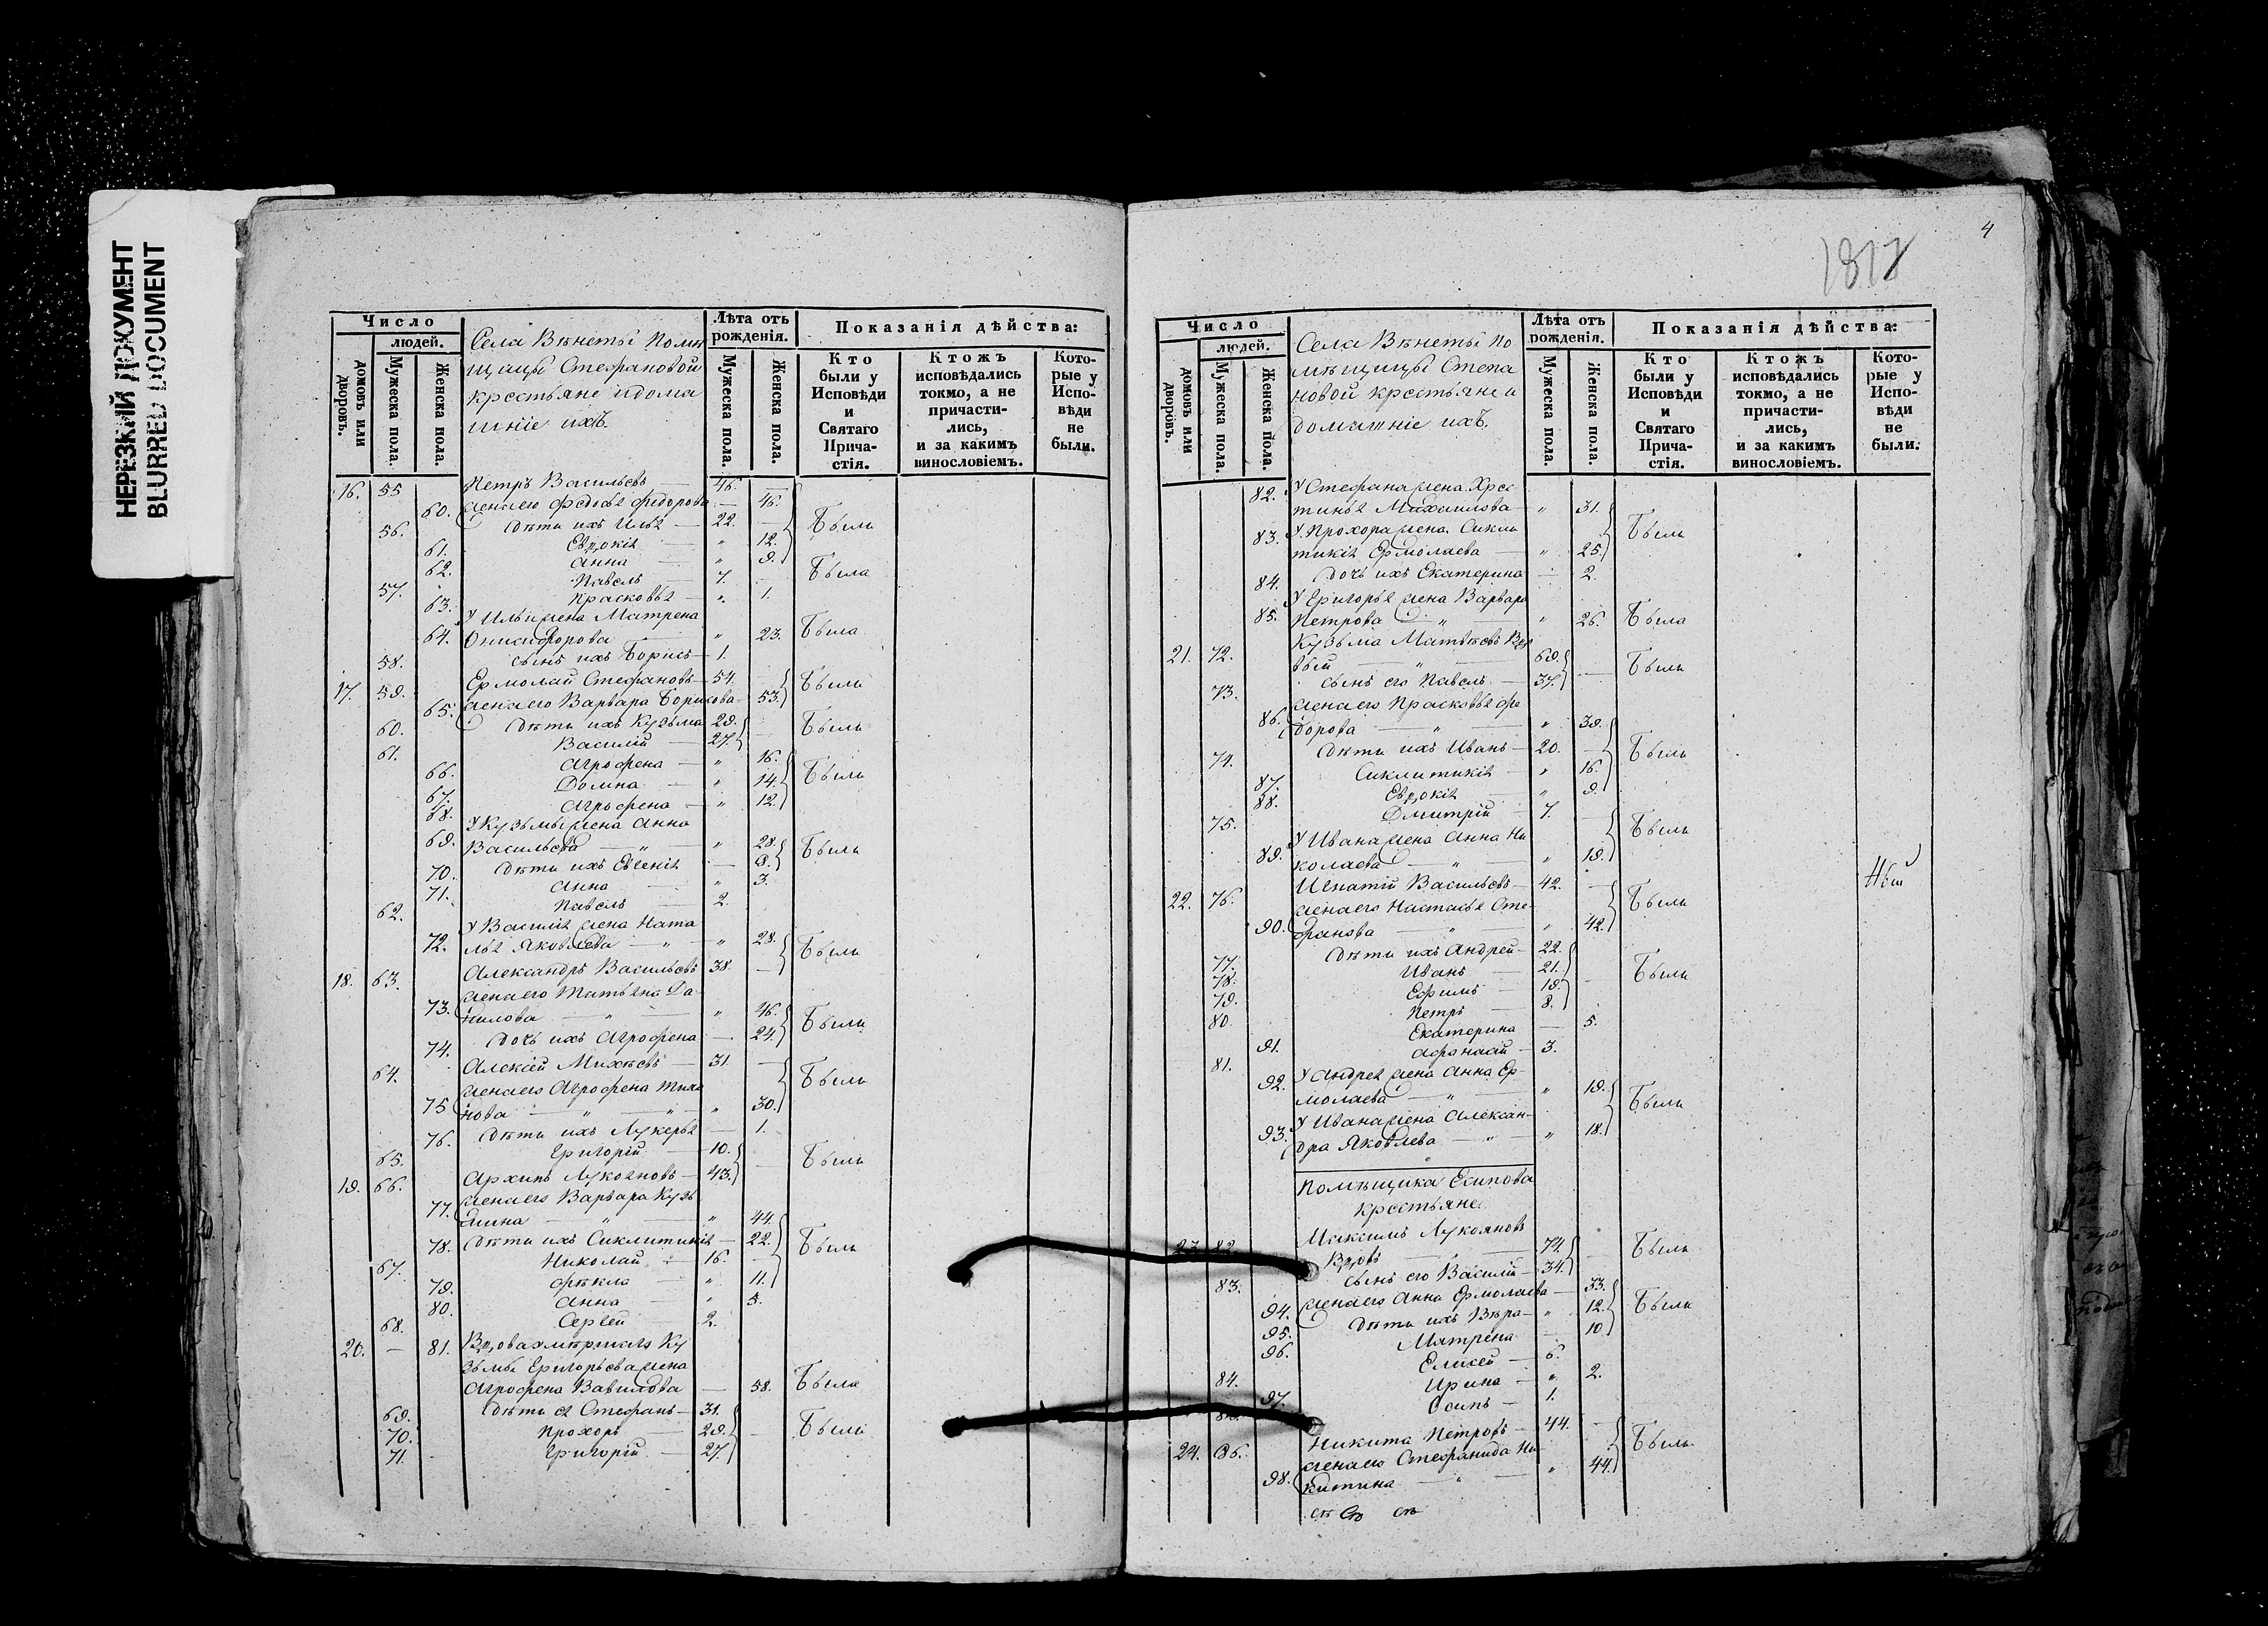 НЕРЕЗКИЙ ДОКУМЕНТ
BLURRED DOCUMENT
Число
людей.
домовъ или дворовъ.
Мужеска пола.
Женска пола.
Села Вѣнеты Помѣ
щицы Стефановой
крестьяне и дома
шніе ихъ.
Лѣта отъ рожденія.
Мужеска пола.
Женска пола.
Показанія дѣйства:
Кто были у Исповѣди и Святаго Прича-стія.
Ктожъ исповѣдались токмо, а не причасти-лись, и за какимъ винословіемъ.
Кото-рые у Испо-вѣди не были.
16. 55 Петръ Васильевъ — 46. —
60. жена его Федосья Федорова — 46.
56. дѣти ихъ Илья — 22. — были
61. Евдокія — „ 12.
62. Анна — „ 9.
57. Павелъ — 7. была
63. Прасковья — „ 1.
У Ильи жена Матрена
64. Никифорова — „ 23. была
58. сынъ ихъ Борисъ — 1.
17. 59. Ермолай Стефановъ — 54. были
65. жена его Варвара Борисова — 53.
60. дѣти ихъ Кузьма 29. были
61. Василій — 27.
66. Агрофена — „ 16.
67. Домна — „ 14. были
68. Агрофена — „ 12.
У Кузьмы жена Анна
69. Васильева — „ — „ 28. были
70. дѣти ихъ Евгенія — 9.
71. Анна — „ 3.
62. Павелъ — 2.
У Василія жена Ната
72. лья Яковлева — „ — „ 28. были
18. 63. Александръ Васильевъ 38. —
жена его Татьяна Да-
73. нилова — „ — „ 46. были
74. дочь ихъ Агрофена — 24.
64. Алексѣй Михѣевъ — 31. — были
жена его Агрофена Тихо
75 нова — „ — „ — „ 30.
76. дѣти ихъ Лукерья — 1.
65. Григорій — 10. были
19. 66. Архипъ Лукояновъ — 43.
жена его Варвара Кузь
77. мина — „ — „ 44.
78. дѣти ихъ Сиклитикія — 22. были
67. Николай — 16. —
79. Ѳекла — „ 11.
80. Анна — „ 5.
68. Сергѣй — 2.
20. — 81. Вдова умершаго Ку
зьмы Григорьева жена
Агрофена Вавилова — 58. была
69. дѣти ея Стефанъ — 31.
70. Прохоръ — 29. — были
71. Григорій — 27.
4
1817
Число
людей.
домовъ или дворовъ.
Мужеска пола.
Женска пола.
Села Вѣнеты По
мѣщицы Степа
новой крестьяне и
домашніе ихъ.
Лѣта отъ рожденія.
Мужеска пола.
Женска пола.
Показанія дѣйства:
Кто были у Исповѣди и Святаго Прича-стія.
Ктожъ исповѣдались токмо, а не причасти-лись, и за какимъ винословіемъ.
Кото-рые у Испо-вѣди не были.
82. У Стефана жена Хрис
тинья Михайлова — „ 31. были
83. У Прохора жена Сикли
тикія Ермолаева — „ 25.
84. дочь ихъ Екатерина — 2.
У Григорья жена Варвара
85. Петрова — „ — „ 26. была
21. 72. Кузьма Матвѣевъ Вдо
вый — „ — 69. — были
73. сынъ его Павелъ — 37.
жена его Прасковья Фе
86. дорова — „ — „ 39.
74. дѣти ихъ Иванъ — 20. — были
87. Сиклитикія — „ 16.
88. Евдокія — „ 9.
75. Дмитрій — 7. — были
У Ивана жена Анна Ни
89. колаева — „ — „ 19.
Нѣтъ
22. 76. Игнатій Васильевъ — 42. — были
жена его Настасья Сте-
90. фанова — „ — „ 42.
77. дѣти ихъ Андрей — 22.
78. Иванъ — 21. — были
79. Ефимъ — 19.
80. Петръ — 8.
91. Екатерина — 5.
81. Афонасій — 3.
92. У Андрея жена Анна Ер-
молаева — „ — „ 19. были
93. У Ивана жена Алексан-
дра Яковлева — „ — „ 18.
Помѣщика Есипова
крестьяне
23. 82. Максимъ Лукояновъ
Вдовъ — 74. — были
83. сынъ его Василій — 34.
94. жена его Анна Ермолаева — 33.
95. дѣти ихъ Вѣра — „ 12. были
96. Матрена — 10.
84. Елисей — 6.
97. Ирина — „ 2.
85. Осипъ — 1.
24. 86. Никита Петровъ — 44. — были
жена его Стефанида Ни
98. китина — „ — „ 44.